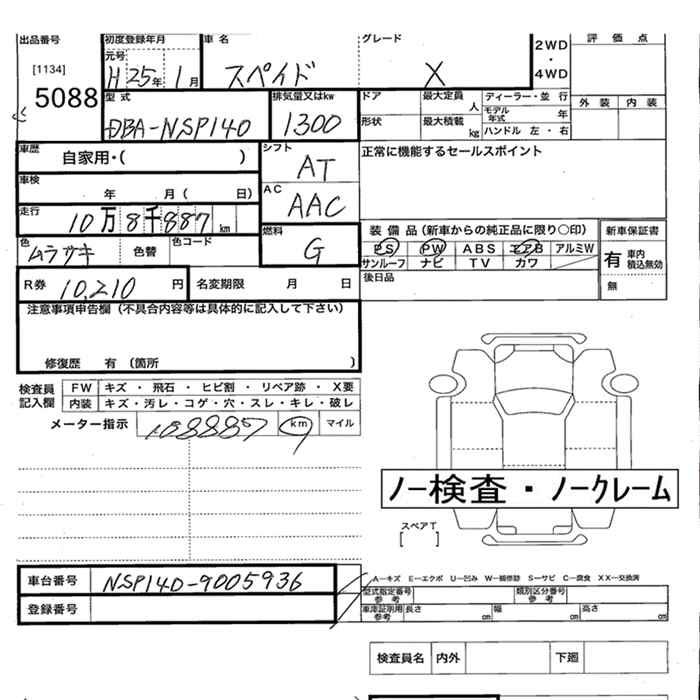 出品番号 初度登録年月 車名 グレード 2WD・4WD 評価点
[1134] 5088
元号 H 25年 1月 スペイド X
型式 排気量又はkw ドア 最大定員 人 ディーラー・並行 外装 内装
DBA-NSP140 1300 形状 最大積載 kg モデル年式 年
ハンドル 左・右
車歴 自家用・( ) シフト AT 正常に機能するセールスポイント
車検 年 月( 日) AC AAC
走行 10万8千887 km
装備品(新車からの純正品に限り○印) 新車保証書
色 ムラサキ 色替 色コード 燃料 G
PS PW ABS エアB アルミW 有 車内積込無効
サンルーフ ナビ TV カワ
後日品 無
R券 10,210 円 名変期限 月 日
注意事項申告欄(不具合内容等は具体的に記入して下さい)
修復歴 有 (箇所 )
検査員記入欄 FW キズ・飛石・ヒビ割・リペア跡・X要
内装 キズ・汚レ・コゲ・穴・スレ・キレ・破レ
メーター指示 108887 km マイル
ノー検査・ノークレーム
スペアT
[ ]
車台番号 NSP140-9005936
A—キズ E—エクボ U—凹み W—補修跡 S—サビ C—腐食 XX—交換済
登録番号 型式指定番号 参考 類別区分番号 参考
車庫証明用 参考 長さ cm 幅 cm 高さ cm
検査員名 内外 下廻